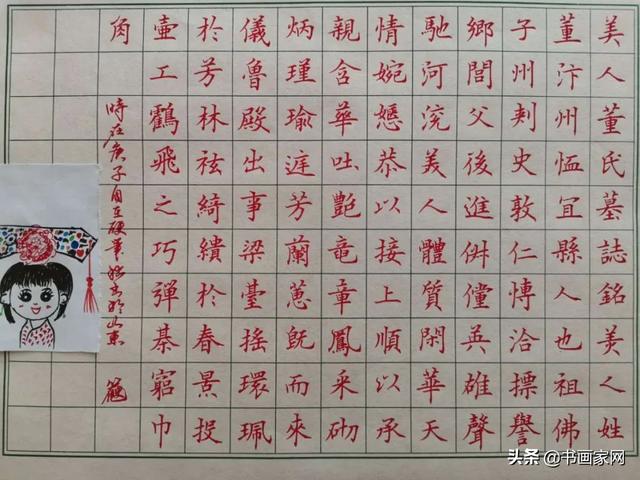 美人董氏墓誌銘美人姓
董汴州恤冝縣人也祖佛
子州刾史敦仁慱洽摽譽
鄉閭父後進俶儻英雄聲
馳河渷美人體質閑華天
情婉嫕恭以接上順以承
親含華吐艷竜章鳳采砌
炳瑾瑜庭芳蘭蕙既而來
儀魯殿出事梁臺搖環珮
於芳林袨綺繢於春景投
壷工鶴飛之巧彈棊窮巾
角
時在庚子自立硬筆書於山東
头条 @书画家网